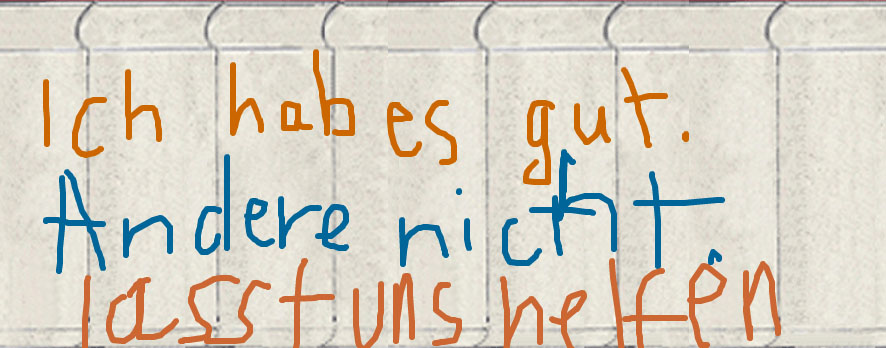 Ich hab es gut.
Andere nicht.
lasst uns helfen